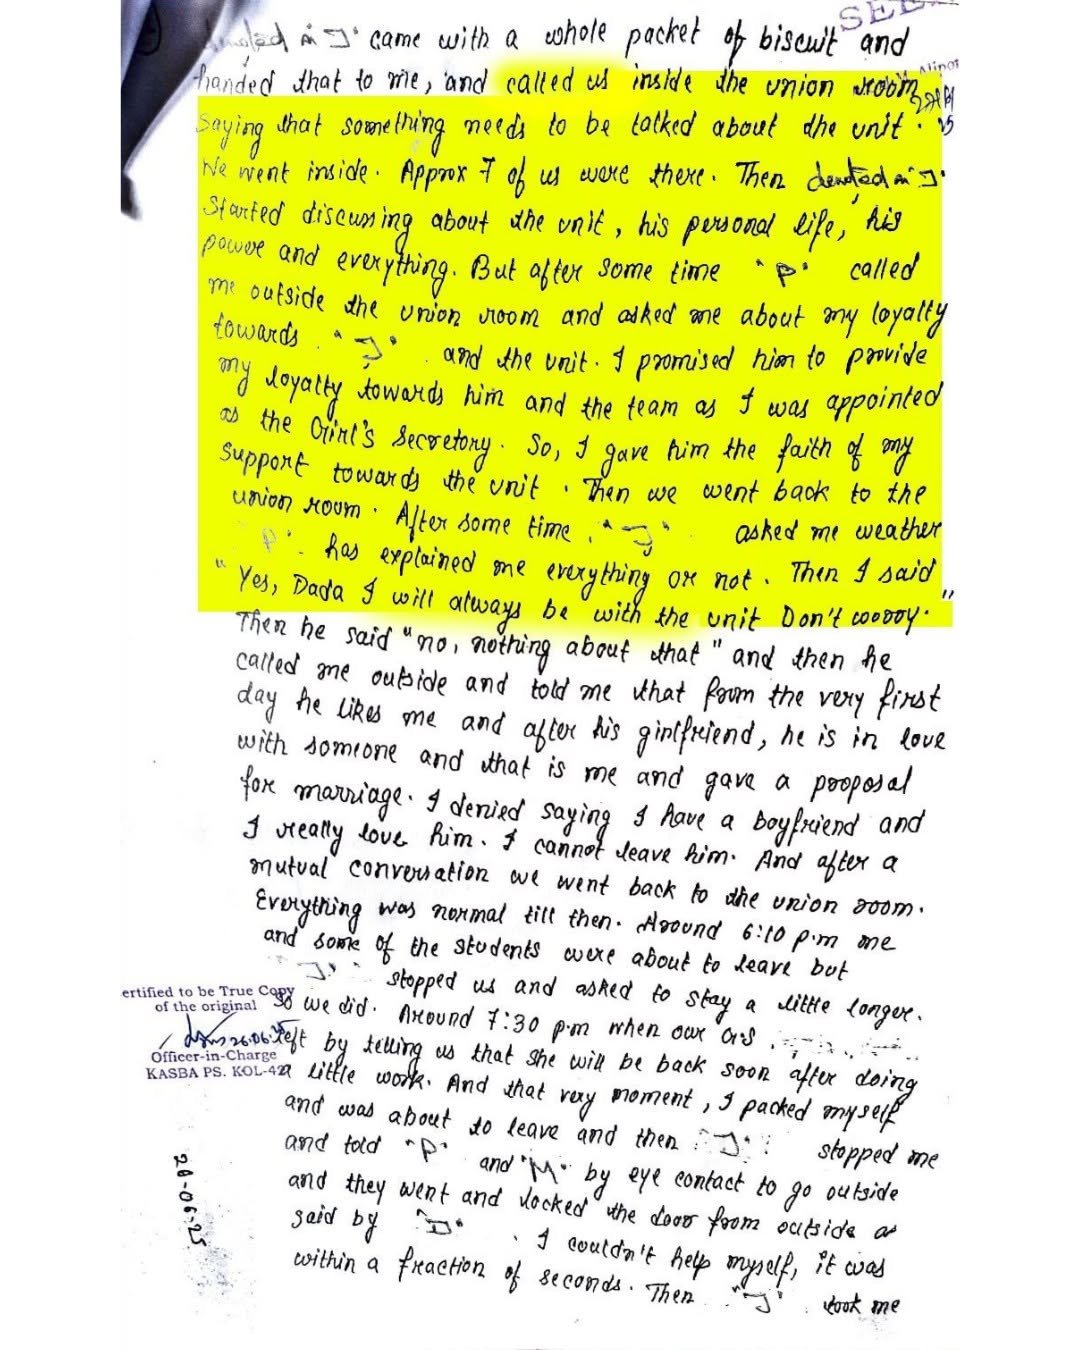 SEE
denoted in "J" came with a whole packet of biscuit and
handed that to me, and called us inside the union room
Alipor
saying that something needs to be talked about the unit.
We went inside. Approx 7 of us were there. Then denoted in "J"
started discussing about the unit, his personal life, his
power and everything. But after some time "P" called
me outside the union room and asked me about my loyalty
towards "J" and the unit. I promised him to provide
my loyalty towards him and the team as I was appointed
as the Girl's Secretory. So, I gave him the faith of my
support towards the unit. Then we went back to the
union room. After some time, "J" asked me weather
"P" has explained me everything or not. Then I said
"Yes, Dada I will always be with the unit Don't worry."
Then he said "no, nothing about that" and then he
called me outside and told me that from the very first
day he likes me and after his girlfriend, he is in love
with someone and that is me and gave a proposal
for marriage. I denied saying I have a boyfriend and
I really love him. I cannot leave him. And after a
mutual conversation we went back to the union room.
Everything was normal till then. Around 6:10 p.m me
and some of the students were about to leave but
"J" stopped us and asked to stay a little longer.
So we did. Around 7:30 p.m when our G.S
left by telling us that she will be back soon after doing
a little work. And that very moment, I packed myself
and was about to leave and then "J" stopped me
and told "P" and "M" by eye contact to go outside
and they went and locked the door from outside as
said by "J". I couldn't help myself, it was
within a fraction of seconds. Then "J" took me
ertified to be True Copy
of the original
26.06.25
Officer-in-Charge
KASBA PS. KOL-42
28-06-25